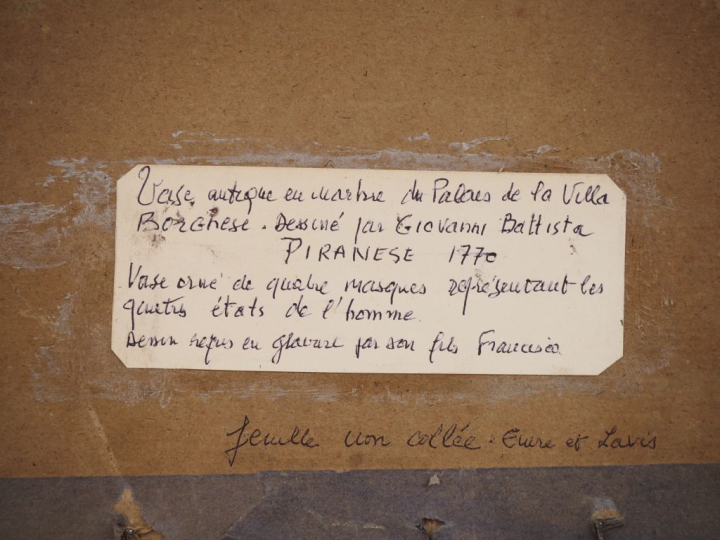 Vase antique en marbre du Palais de la Villa
Borghese. Dessiné par Giovanni Battista
PIRANESE 1770
Vase orné de quatre masques représentant les
quatre états de l'homme.
Dessin repris en gravure par son fils Francesco
feuille non collée. Encre et Lavis